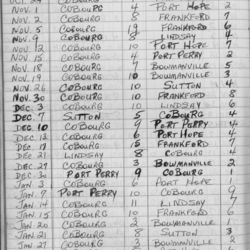 OCT. 29 COBOURG
NOV. 1 COBOURG 4 PORT HOPE 2
NOV. 2 COBOURG 8 FRANKFORD 7
NOV. 5 COBOURG FRANKFORD 6
NOV. 9 COBOURG 12 LINDSAY 4
NOV. 12 COBOURG 10 PORT HOPE 7
NOV. 15 COBOURG 4 PORT PERRY 2
NOV. 18 COBOURG 7 BOWMANVILLE 5
NOV. 19 COBOURG 10 BOWMANVILLE 3
NOV. 26 COBOURG SUTTON 4
NOV. 30 COBOURG 10 FRANKFORD 8
DEC. 3 COBOURG 10 LINDSAY 6
DEC. 7 SUTTON 5 COBOURG 4
DEC. 10 COBOURG 7 PORT PERRY 4
DEC. COBOURG 6 PORT HOPE 4
DEC. COBOURG 15 FRANKFORD 7
DEC. 21 LINDSAY 8 COBOURG 4
DEC. COBOURG 3 BOWMANVILLE 2
DEC. 30 PORT PERRY 9 COBOURG 1
JAN. 3 COBOURG 6 PORT HOPE 1
JAN. 7 PORT PERRY 10 COBOURG 9
JAN. 14 COBOURG 11 LINDSAY 7
JAN. 15 COBOURG 10 FRANKFORD 6
JAN. 20 COBOURG 2 BOWMANVILLE 1
JAN. 21 COBOURG 8 SUTTON 3
JAN. 21 COBOURG 3 BOWMANVILLE